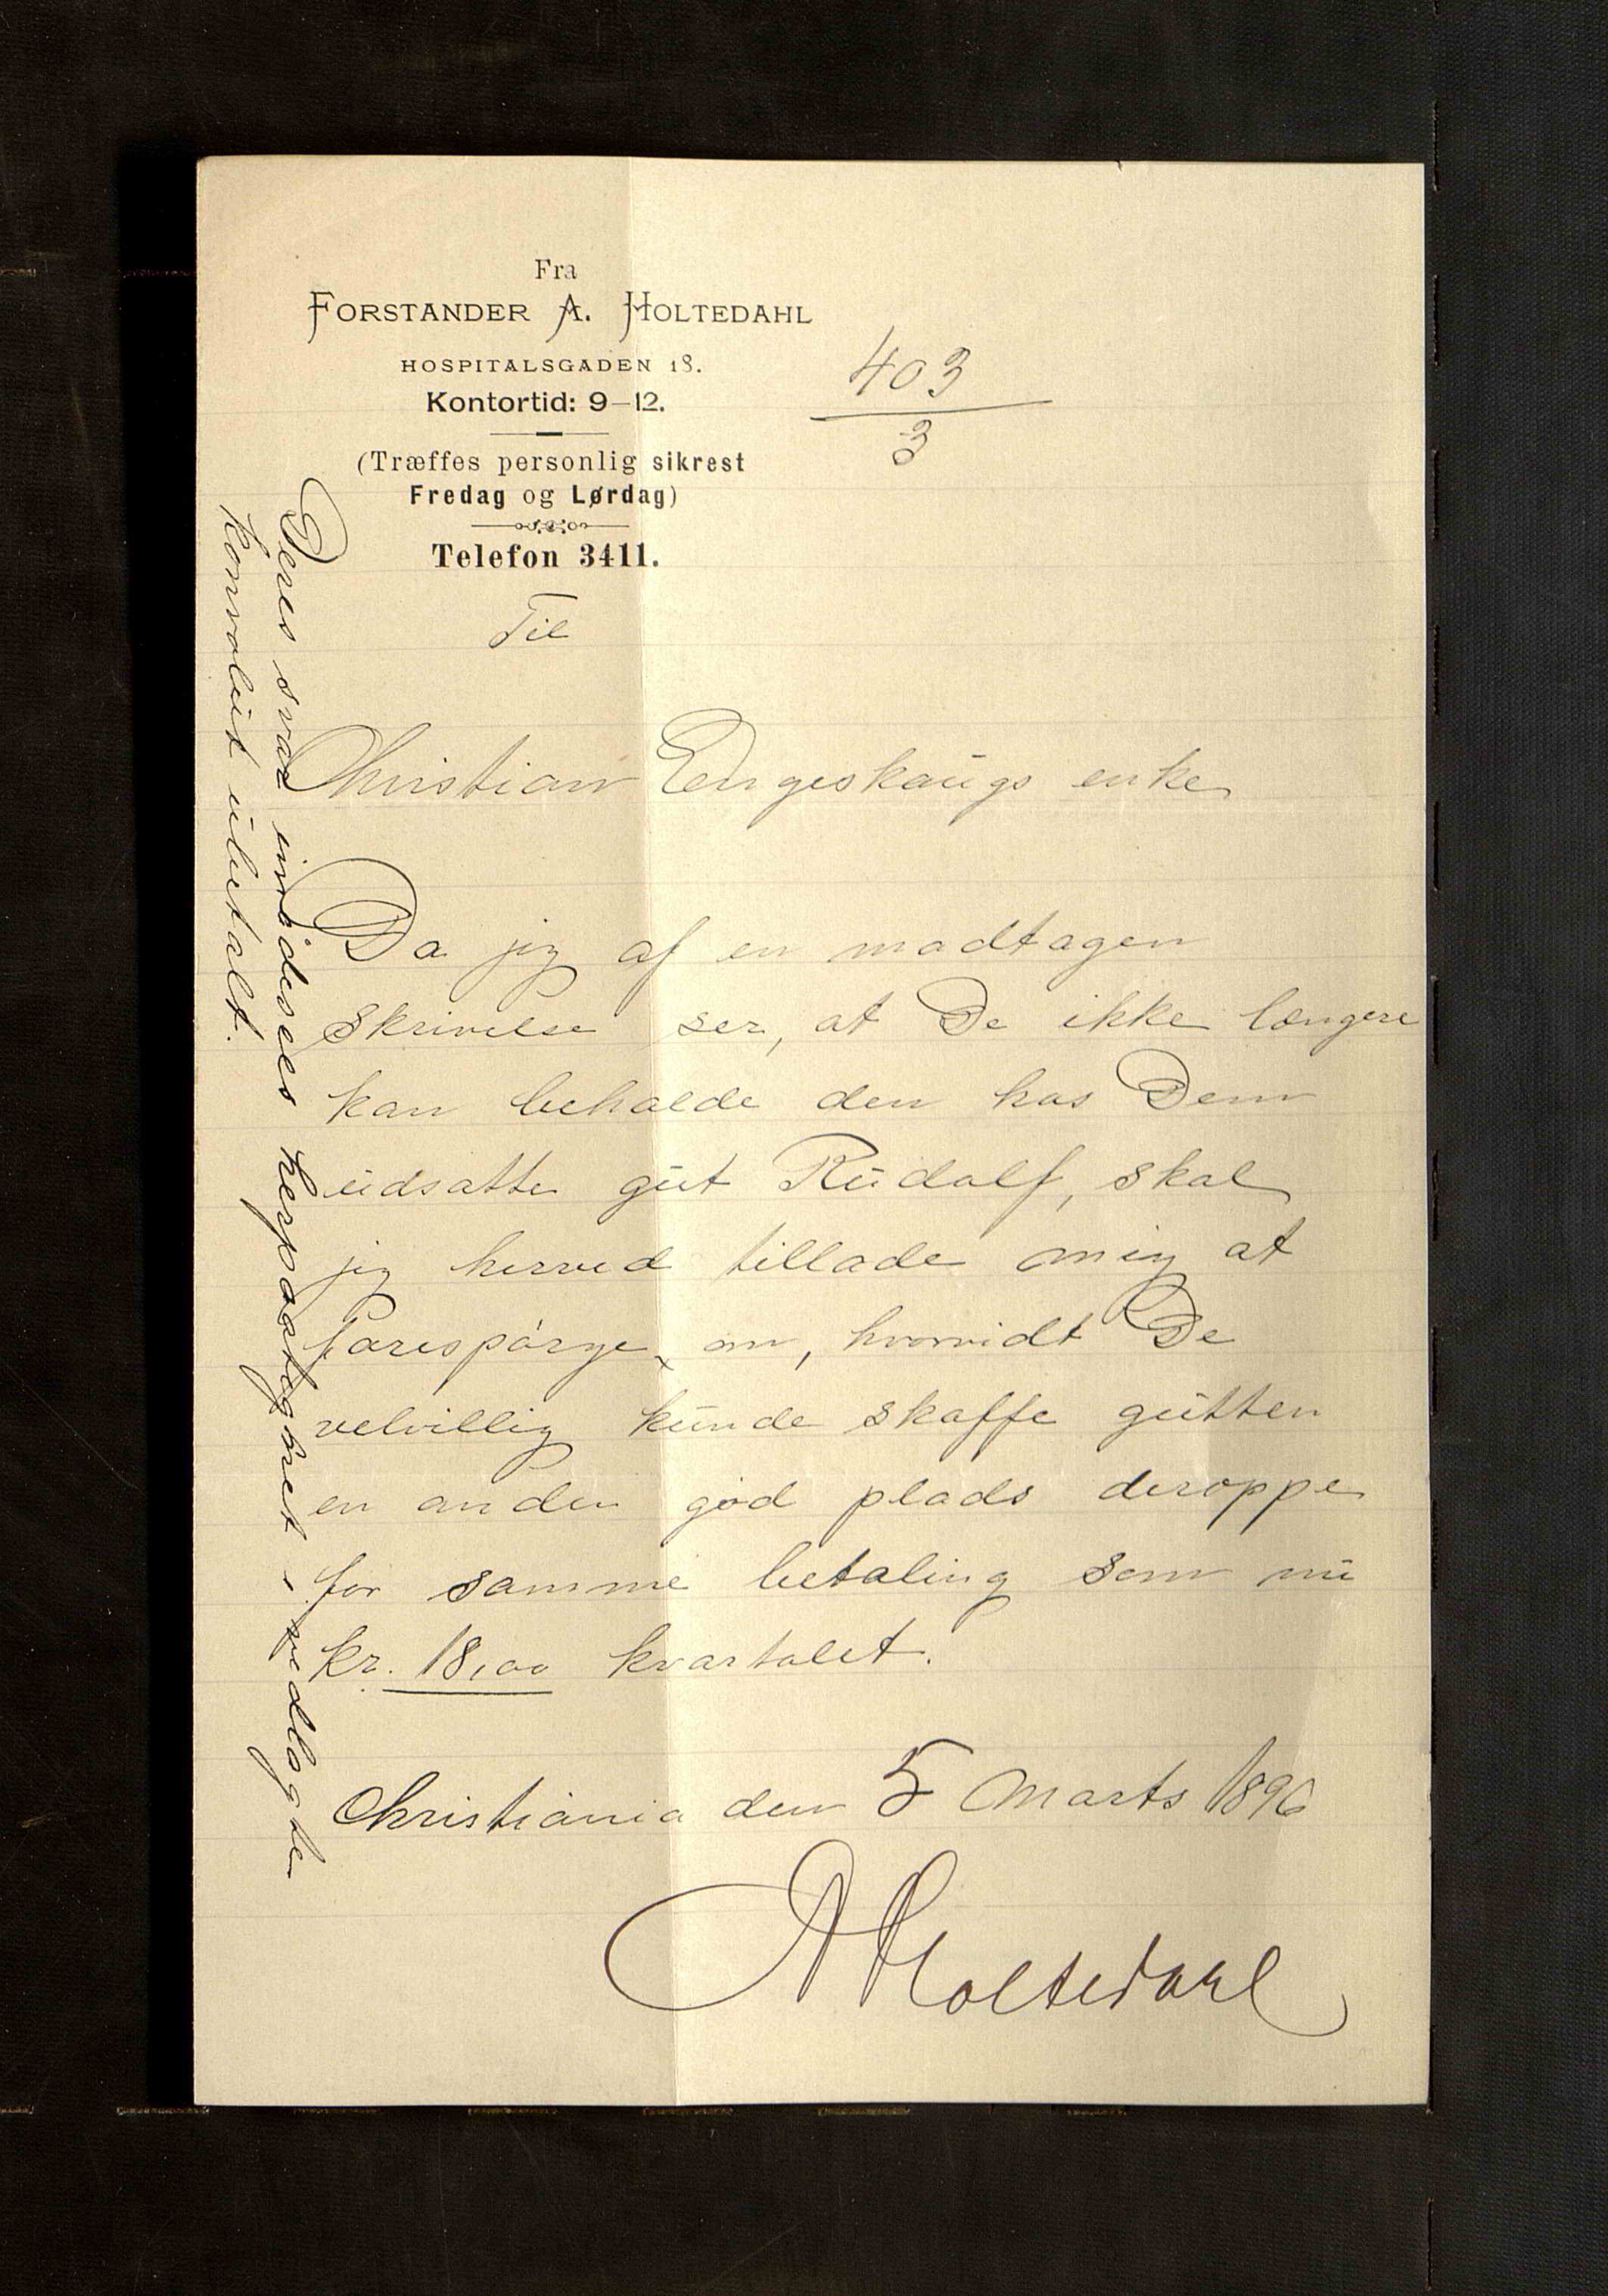 Fra
FORSTANDER A. HOLTEDAHL
HOSPITALSGADEN 18.
Kontortid: 9–12.
(Træffes personlig sikrest
Fredag og Lørdag)
Telefon 3411.
403
3
Til
Christian Engeskaugs enke
Da jeg af en modtagen
skrivelse ser, at De ikke længere
kan beholde den hos Dem
udsatte gut Rudolf, skal
jeg herved tillade mig at
forespørge, om, hvorvidt De
velvillig kunde skaffe gutten
en anden god plads deroppe
for samme betaling som nu
kr. 18,00 kvartalet.
Christiania den 5 Marts 1896
A Holtedahl
Deres svar imødesees herpaategnet i vedlagte
konvolut ubetalt.